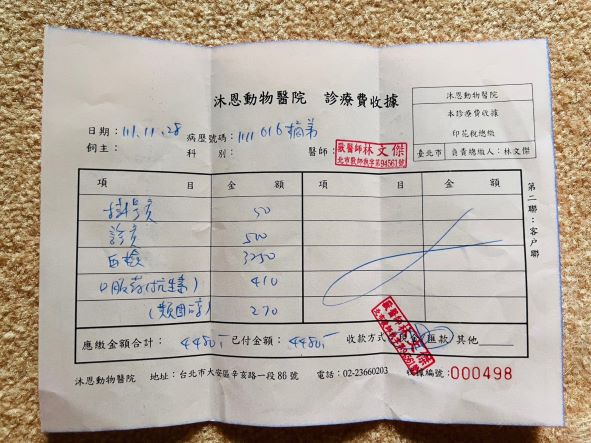 沐恩動物醫院 診療費收據
沐恩動物醫院
本診療費收據
印花稅總繳
臺北市 負責總繳人：林文傑
日期：111.11.28 病歷號碼：1111016 橘弟
飼主： 科別： 醫師：
獸醫師 林文傑
北市獸師執字第94561號
項目 金額 項目 金額
掛號費 50
診費 500
血檢 3250
口服药(抗生素) 410
(類固醇) 270
應繳金額合計： 4480,- 已付金額： 4480,- 收款方式 現金 匯款 其他
獸醫師 林文傑
沐恩動物醫院 地址：台北市大安區辛亥路一段86號 電話：02-23660203 收據編號：000498
第二聯：客戶聯